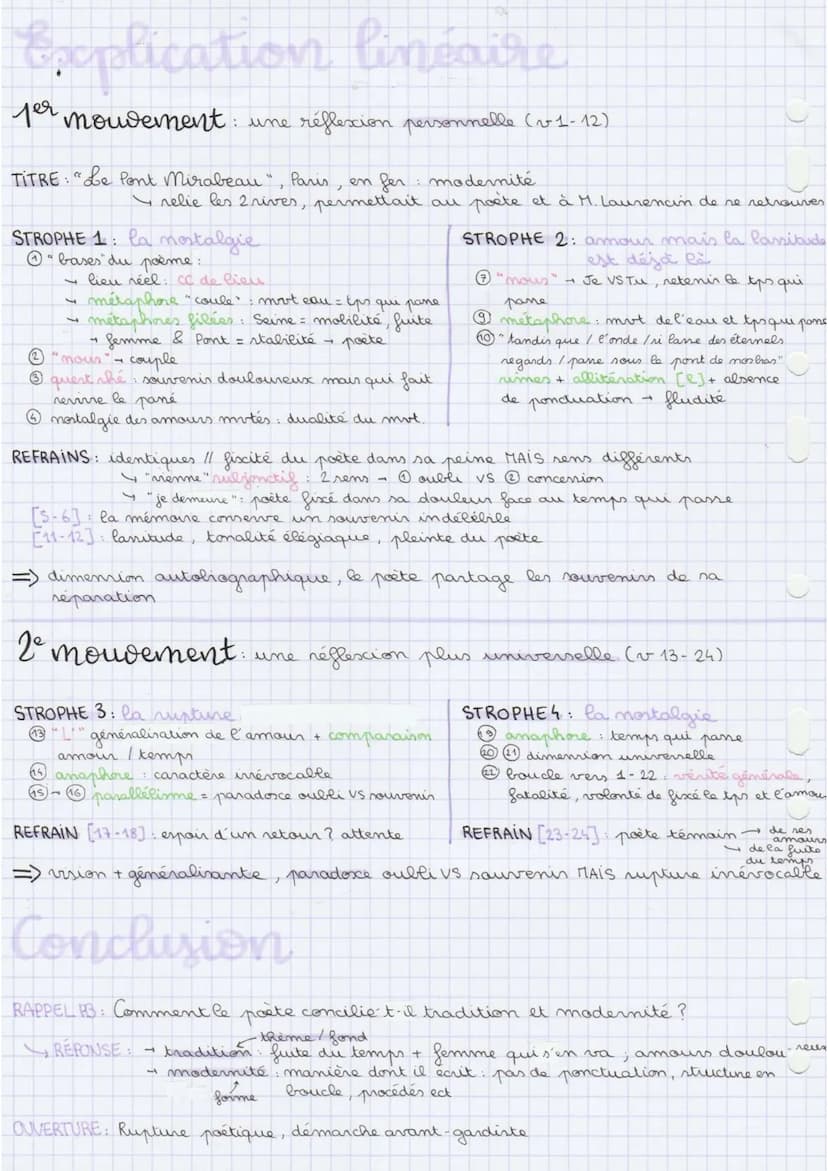 Explication linéaire
1er mouvement : une réflexion personnelle (v 1-12)
TITRE : "Le Pont Mirabeau", Paris, en fer : modernité
↳ relie les 2 rives, permettait au poète et à M. Laurencin de se retrouver
STROPHE 1 : la nostalgie
① "bases" du poème :
→ lieu réel : CC de lieu
→ métaphore "coule" : mvt eau = tps qui passe
→ métaphores filées : Seine = mobilité, fuite
→ femme & Pont = stabilité → poète
② "nous" → couple
③ quest rhé : souvenir douloureux mais qui fait
revivre le passé
④ nostalgie des amours mvtés : dualité du mvt.
STROPHE 2 : amour mais la lassitude
est déjà là
⑦ "nous" → Je VS Tu, retenir le tps qui
passe
⑨ métaphore : mvt de l'eau et tps qui passe
⑩ "tandis que / l'onde / si lasse des éternels
regards / passe sous le pont de nos bras"
rimes + allitération [L] + absence
de ponctuation → fluidité
REFRAINS : identiques // fixité du poète dans sa peine MAIS sens différents
↳ "vienne" subjonctif : 2 sens → ① oubli VS ② concession
↳ "je demeure" : poète fixé dans sa douleur face au temps qui passe
[5-6] : la mémoire conserve un souvenir indélébile
[11-12] : lassitude, tonalité élégiaque, pleinte du poète
⇒ dimension autobiographique, le poète partage les souvenirs de sa
séparation
2e mouvement : une réflexion plus universelle (v 13-24)
STROPHE 3 : la rupture
⑬ "L'" généralisation de l'amour + comparaison
amour / temps
⑭ anaphore : caractère irrévocable
⑮ → ⑯ parallélisme = paradoxe oubli VS souvenir
REFRAIN [17-18] : espoir d'un retour ? attente
STROPHE 4 : la nostalgie
⑲ anaphore : temps qui passe
⑳ ㉑ dimension universelle
㉒ boucle vers 1-22 : vérité générale,
fatalité, volonté de fixé le tps et l'amou
REFRAIN [23-24] : poète témoin → de ses
amours
↳ de la fuite
du temps
⇒ vision + généralisante, paradoxe oubli VS souvenir MAIS rupture irrévocable
Conclusion
RAPPEL PB : Comment le poète concilie-t-il tradition et modernité ?
thème / fond
↳ RÉPONSE : → tradition : fuite du temps + femme qui s'en va ; amours doulou-reux
→ modernité : manière dont il écrit : pas de ponctuation, structure en
forme boucle, procédés ect
OUVERTURE : Rupture poétique, démarche avant-gardiste